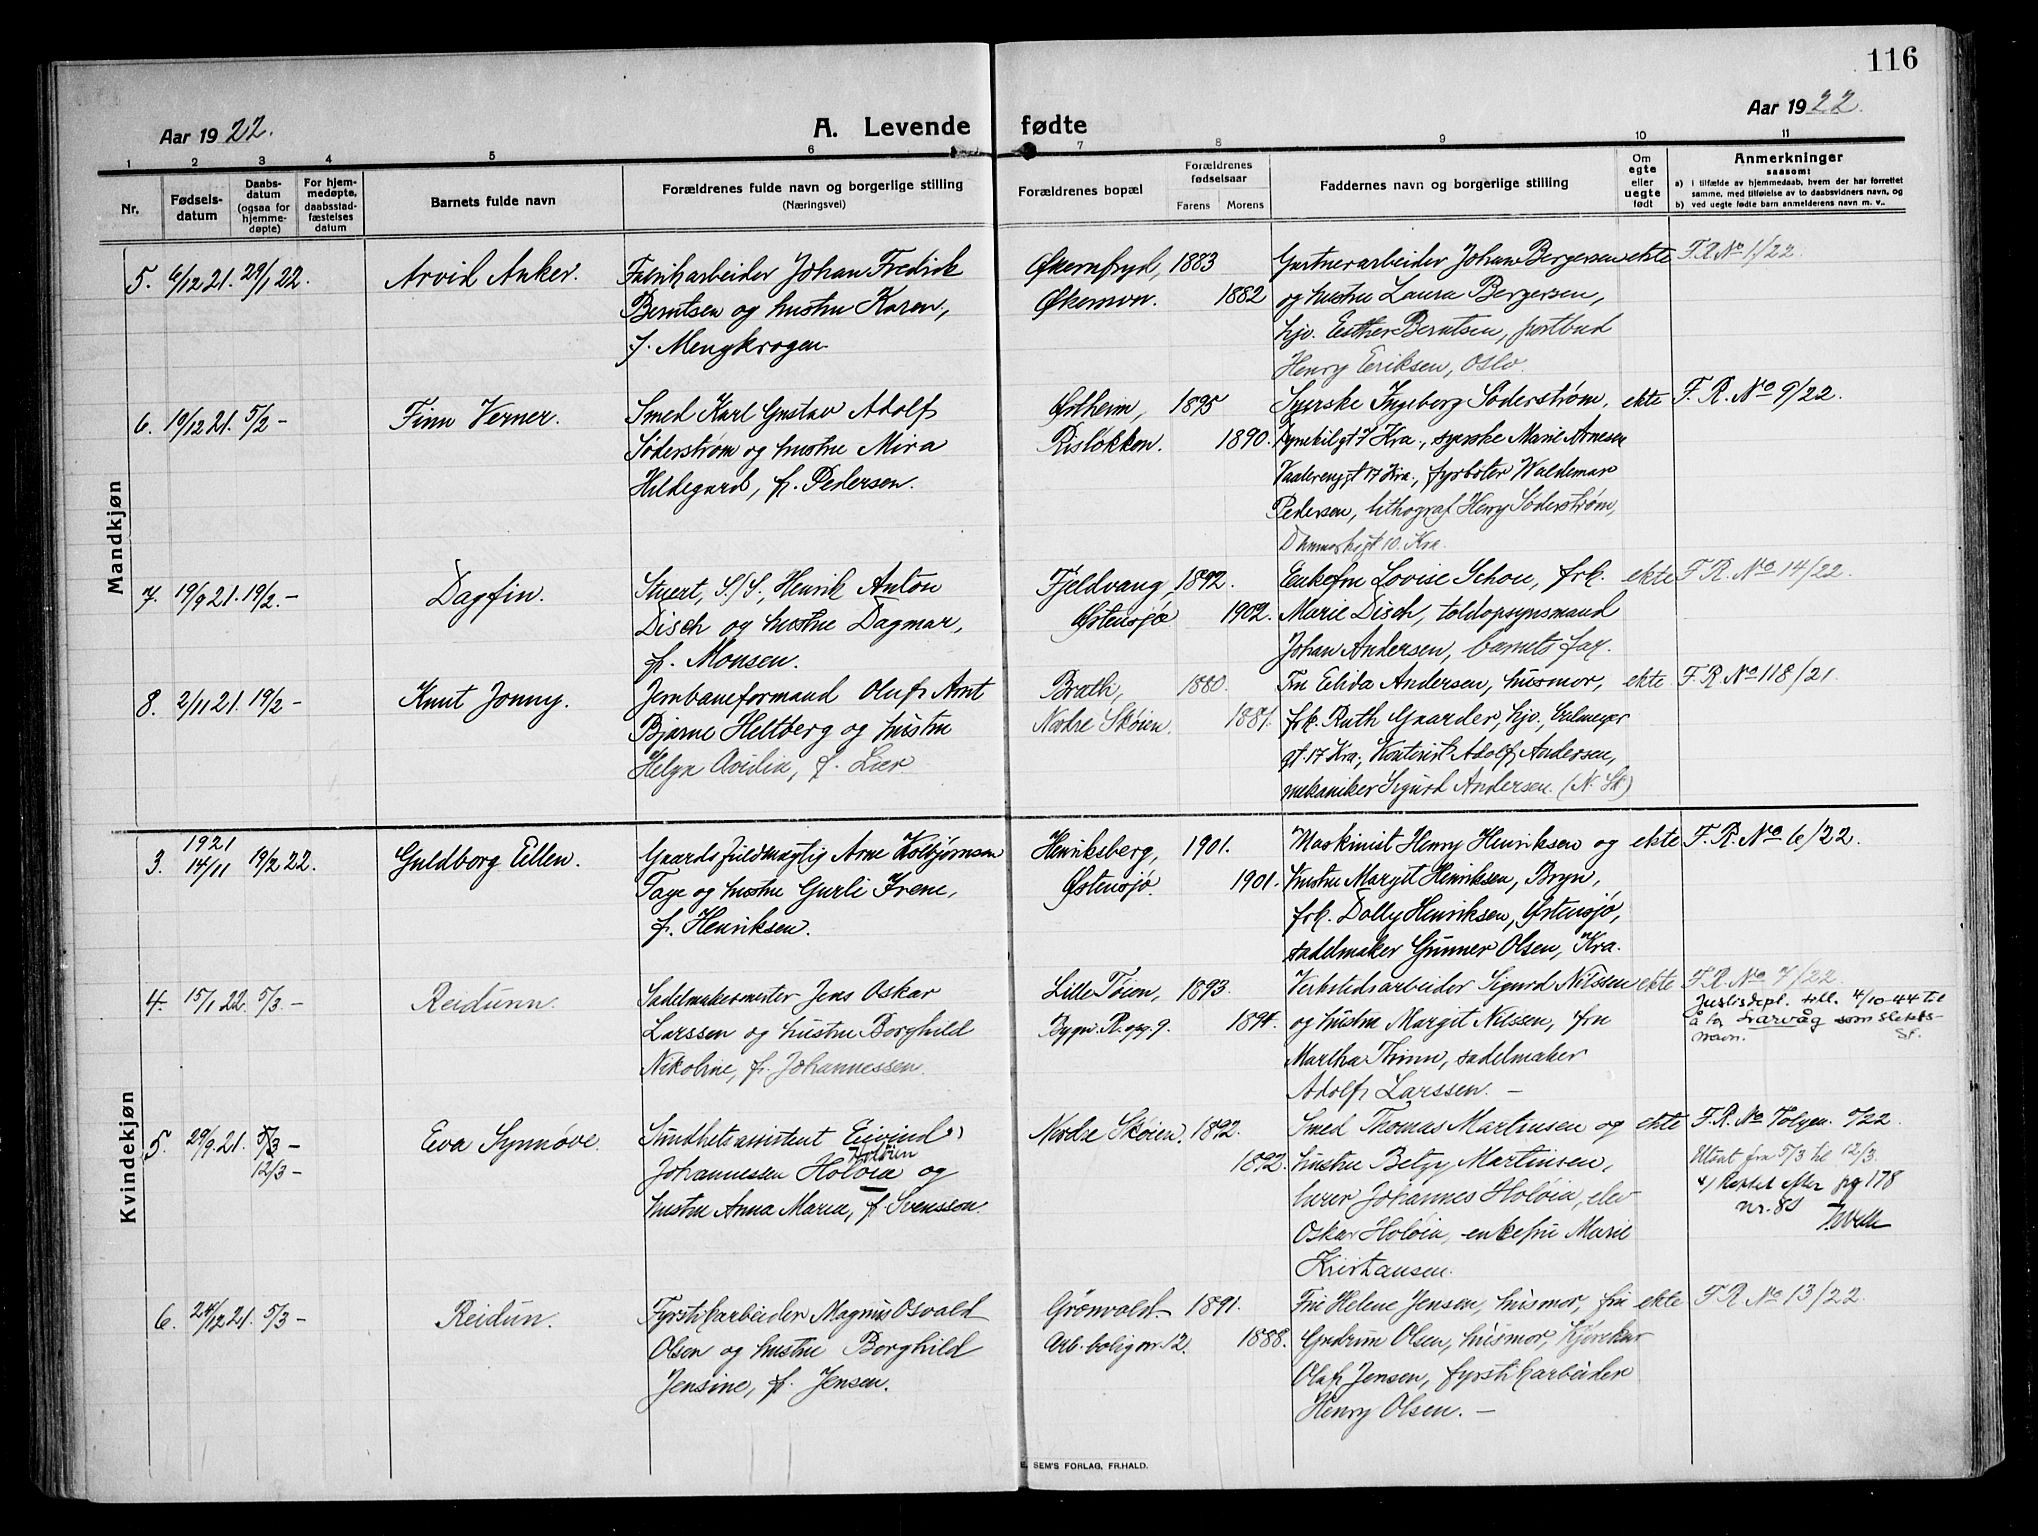 116
Aar 1922.
A. Levende fødte
Aar 1922.
1 2 3 4 5 6 7 8 9 10 11
Nr.
Fødsels-
datum
Daabs-
datum
(ogsaa for
hjemme-
døpte)
For hjem-
medøpte,
daabsstad-
fæstelses
datum
Barnets fulde navn
Forældrenes fulde navn og borgerlige stilling
(Næringsvei)
Forældrenes bopæl
Forældrenes
fødselsaar
Farens Morens
Faddernes navn og borgerlige stilling
Om
egte
eller
uegte
født
Anmerkninger
saasom:
a) i tilfælde av hjemmedaab, hvem der har forrettet
samme, med tilføielse av to daabsvidners navn, og
b) ved uegte fødte barn anmelderens navn m. v..
Mandkjøn
5. 6/12 21. 29/1 22. Arvid Anker.
Fabrikarbeider Johan Fredrik
Berntsen og hustru Karen,
f. Mengkrogen.
Økernfryd, 1883
Økernvn. 1882
Gartnerarbeider Johan Bergersen
og hustru Laura Bergersen,
hjv. Esther Berntsen, postbud
Henry Eriksen, Oslo.
ekte F.R. No 1/22.
6. 19/12 21. 5/2 - Finn Verner.
Smed Karl Gustav Adolf
Söderstrøm og hustru Mira
Hildegard, f. Pedersen.
Østheim, 1895
Risløkken. 1890.
Syerske Ingeborg Söderstrøm,
7 Kra., syerske Marie Arnesen
Vaalerenggt 17 Kra., fyrbøter Waldemar
Pedersen, lithograf Henry Söderstrøm,
Danmarksgt 10. Kra.
ekte F.R. No 9/22.
7. 19/9 21. 19/2. - Dagfin.
Stuert, S/S, Henrik Anton
Disch og hustru Dagmar,
f. Monsen.
Fjeldvang, 1892.
Østensjø 1902.
Enkefru Lovise Schou, frk.
Marie Disch, toldopsynsmand
Johan Andersen, barnets far.
ekte F.R. No 14/22.
8. 2/11 21. 19/2 - Knut Jonny.
Jernbaneformand Oluf Arnt
Bjarne Heltberg og hustru
Helga Ovidia, f. Lier.
Brath, 1880.
Nedre Skøien. 1881.
Fru Elida Andersen, husmor,
frk. Ruth Gaarder, hjv., Calmeyer
gt. 17 Kra., Kontorist Adolf Andersen,
mekaniker Sigurd Andersen. (N. Sk)
ekte F.R. No 118/21.
Kvindekjøn
1921
3. 14/11 19/2 22. Guldborg Ellen.
Gaardsfuldmægtig Arne Kolbjørnsen
Tage og hustru Gurli Irene,
f. Henriksen.
Henriksberg, 1901.
Østensjø. 1901.
Maskinist Henry Henriksen og
hustru Margit Henriksen, Bryn,
frk. Dolly Henriksen, Østensjø,
sadelmaker Gunner Olsen, Kra.
ekte F.R. No 6/22.
4. 15/1 22. 5/3 - Reidunn.
Sadelmakermester Jens Oskar
Larssen og hustru Borghild
Nikoline, f. Johannessen.
Lille Tøien, 1893.
Bygn. R. opg. 9. 1894.
Verkstedsarbeider Sigurd Nilssen
og hustru Margit Nilssen, fru
Martha Thinn, sadelmaker
Adolf Larssen. -
ekte F.R. No 7/22
Justisdept. till. 4/10-44 til
å ta Svarvåg som slekts-
navn. Sf.
5. 29/9. 21. 5/3 - Eva Synnøve.
12/3 -
Sundhetsassistent Eivind
Holøien
Johannessen Holøia og
hustru Anna Maria, f. Svensson.
Nedre Skøien. 1892.
1892.
Smed Thomas Martinsen og
hustru Betzy Martinsen,
lærer Johannes Holøia, elev
Oskar Holøia, enkefru Marie
Kristiansen.
ekte F.R. No Tolgen. 5/22
Utsat fra 5/3 til 12/3.
pg 178
nr. 8
6. 24/12 21. 5/3 - Reidun.
Fyrstikarbeider Magnus Osvald
Olsen og hustru Borghild
Jensine, f. Jensen.
Grønvold. 1891.
Arb.-bolig nr. 12. 1888.
Fru Helene Jensen, husmor, fru
Gudrun Olsen, husmor, kjørekar
Olaf Jensen, fyrstikarbeider
Henry Olsen. -
ekte F.R. No 13/22.
E. SEM'S FORLAG, FR.HALD.